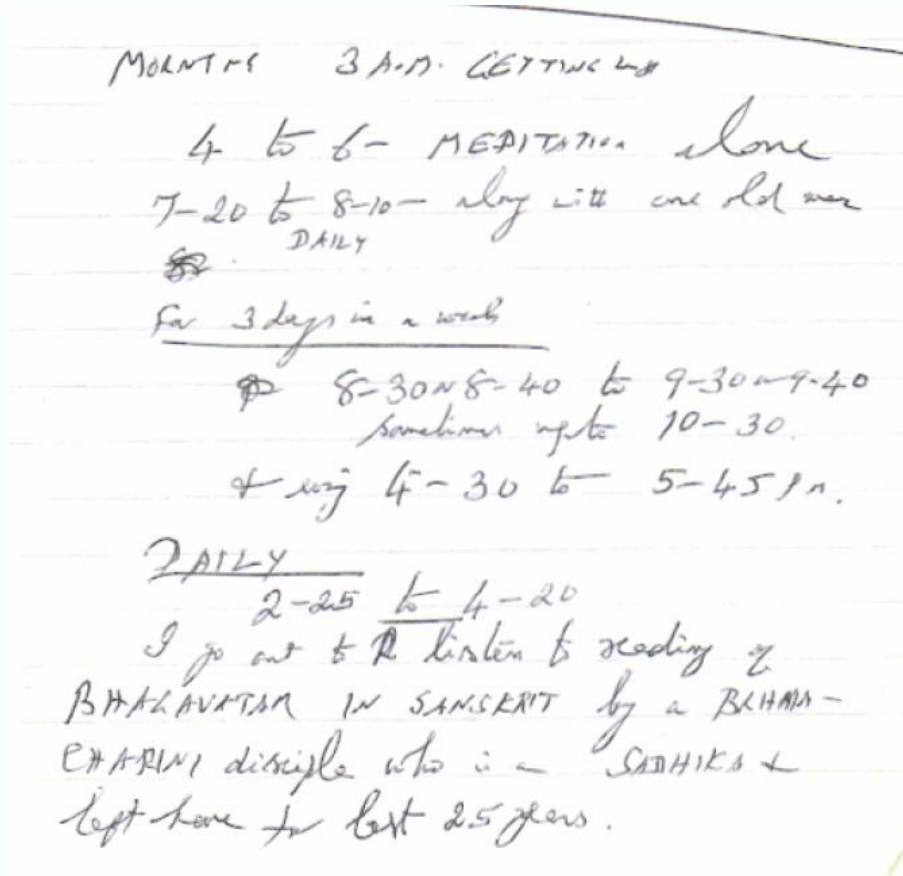 MORNING 3 A.M. GETTING up
4 to 6 - MEDITATION alone
7-20 to 8-10 - along with one old man
DAILY
For 3 days in a week
8-30 or 8-40 to 9-30 or 9-40
sometimes upto 10-30.
& evg 4-30 to 5-45 pm.
DAILY
2-25 to 4-20
I go out to listen to reading of
BHAGAVATAM IN SANSKRIT by a BRHMA-
CHARINI disciple who is a SADHIKA &
left home for last 25 years.